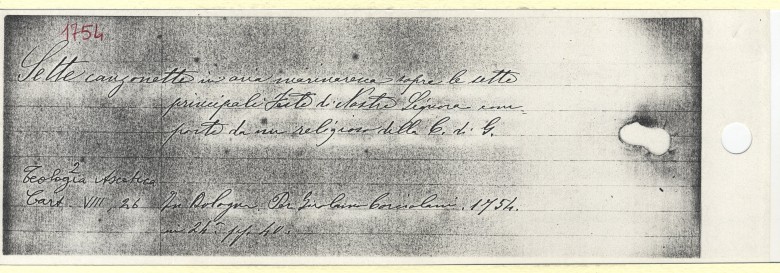 1754
Sette canzonette in aria marinaresca sopra le sette
principali Feste di Nostra Signora com=
poste da un religioso della C. di G.
Teologia Ascetica
2
Cart. VIII, 26 In Bologna. Per Girolamo Corciolani. 1754.
in 24° pp. 40.